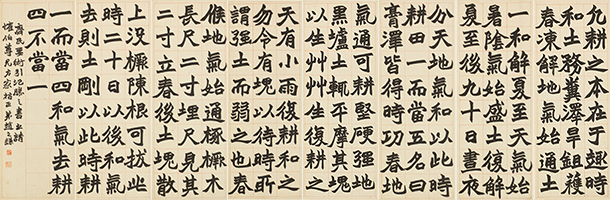 凡耕之本在于趣時
和土務糞澤旱鉏穫
春凍解地氣始通土
一和解夏至天氣始
暑陰氣始盛土復解
夏至後九十日晝夜
分天地氣和以此時
耕田一而當五名曰
膏澤皆得時功春地
氣通可耕堅硬強地
黑壚土輒平摩其塊
以生艸艸生復耕之
天有小雨復耕和之
勿令有塊以待時所
謂強土而弱之也春
候地氣始通椓橛木
長尺二寸埋尺見其
二寸立春後土塊散
上沒橛陳根可拔此
時二十日以後和氣
去則土剛以此時耕
一而當四和氣去耕
四不當一
齊民要術引氾勝之書
伯尊兄方家指正弟趙之謙